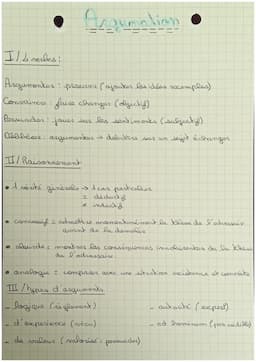 Argumentation
I / 4 verbes :
Argumenter : prouver (ajouter les idées + exemples)
Convaincre : faire changer (objectif)
Persuader : jouer sur les sentiments (subjectif)
Délibérer : argumenter → débattre sur un sujet échanger
II / Raisonnement
• 1 vérité générale → 1 cas particulier
= déductif
≠ inductif
• concessif = admettre momentanément la thèse de l'adversaire
avant de la démonter
• absurde = montrer les conséquences de la thèse
de l'adversaire
• analogie = comparer avec une situation et concrète
III / types d'arguments
_ logique (règlement)
_ autorité (expert)
_ d'expérience (vécu)
_ ad hominem (pas crédible)
_ de valeur (